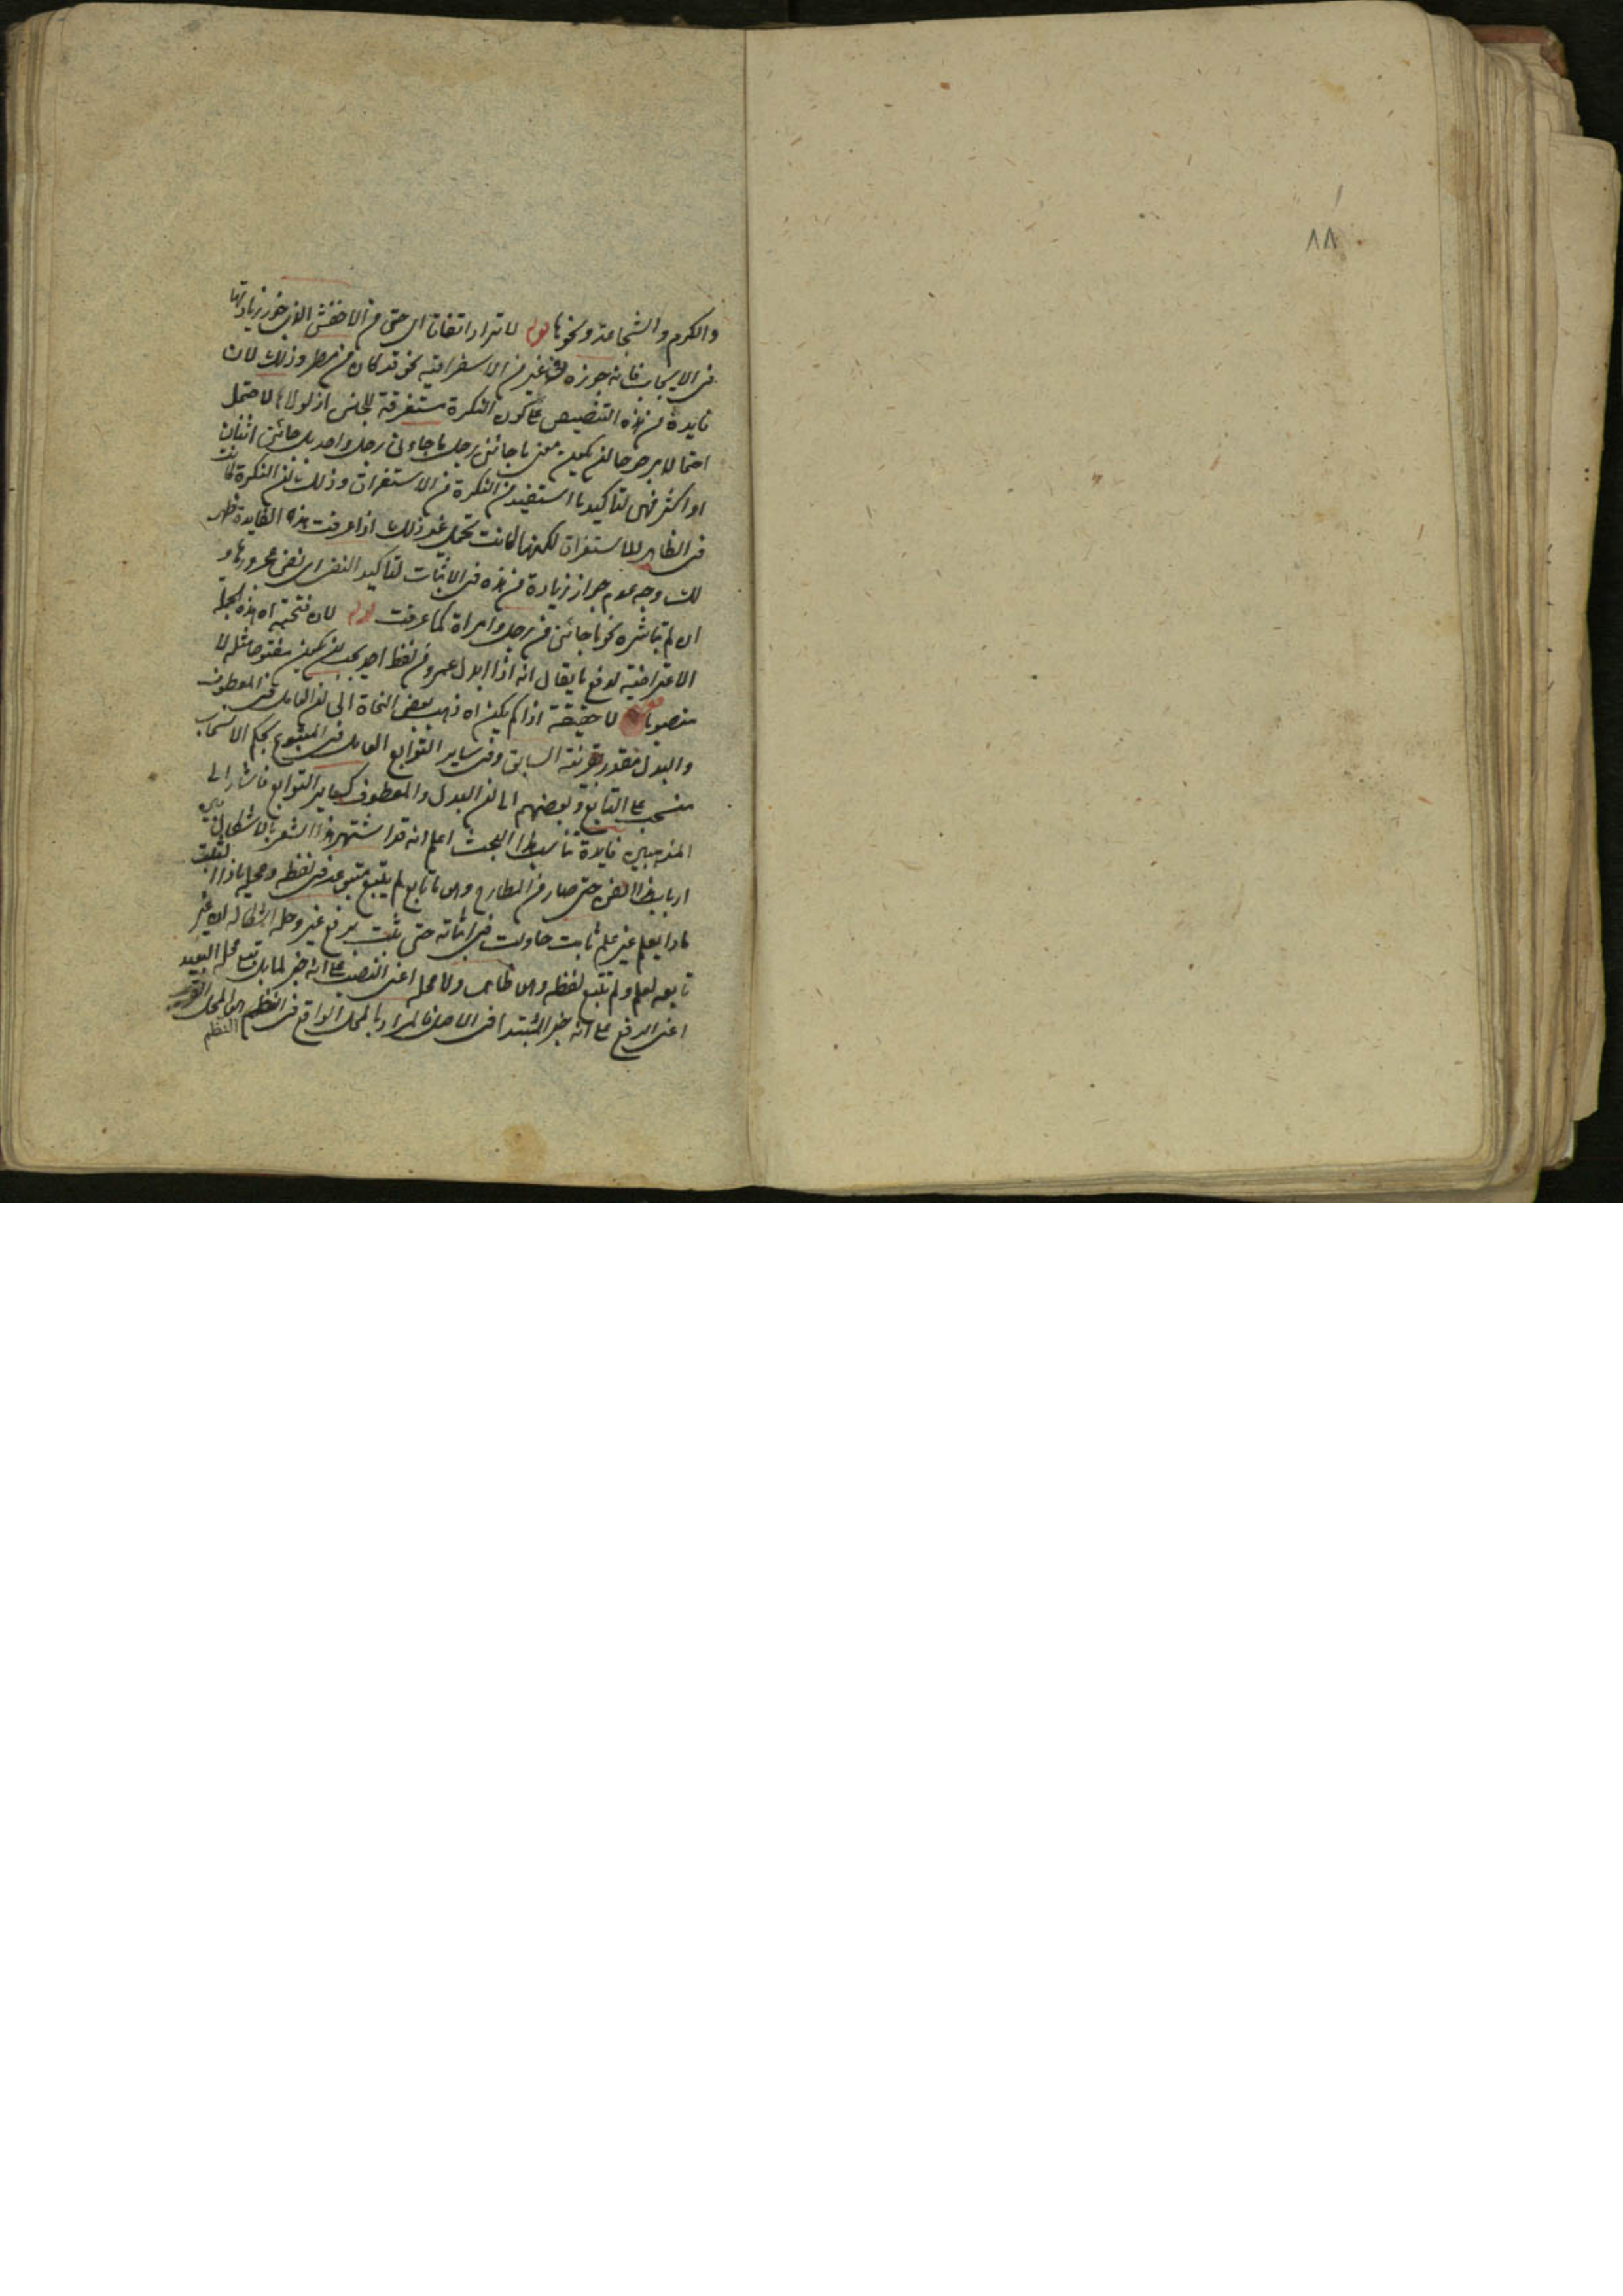 ٨٨
والكرم والشجاعة ونحوها قوله لا تزاد اتفاقا اى حتى من الاخفش الذى جوز زيادتها
فى الايجاب فانه جوزه فى غير من الاستغراقية نحو قد كان من مطر وذلك لان
فايدة من هذه التنصيص على كون النكرة مستغرقة للجنس اذ لولاها لاحتمل
احتمالا مرجوحا ان يكون معنى ما جائنى رجل ما جاءنى رجل واحد بل جائنى اثنان
او اكثر فهى لتاكيد ما استفيد من النكرة من الاستغراق وذلك لان النكرة كانت
فى الظاهر للاستغراق لكنها كانت تحتمل غير ذلك اذا عرفت هذه الفايدة ظهر
لك وجه عدم جواز زيادة من هذه فى الاثبات لتاكيد النفى اى نفى مجرورها و
ان لم تباشره نحو ما جائنى من رجل وامراة كما عرفت قوله لان فتحته اه هذه الجملة
الاعتراضية لدفع ما يقال انه اذا ابدل عمرو من لفظ احد يجب ان يكون مفتوحا مثله لا
منصوبا قوله لا حقيقة اذا لم يكن اه ذهب بعض النحاة الى ان العامل فى المعطوف
والبدل مقدر بقرينة السابق وفى ساير التوابع العامل فى المتبوع بحكم الانسحاب
منسحب على التابع وبعضهم الى ان البدل والمعطوف كساير التوابع فاشار الى
المذهبين فايدة تناسب هذا البحث اعلم انه قد اشتهر هذا الشعر بالاشكال بين
ارباب هذا الفن حتى صار من المطارح وهى ما تابع لم يتبع متبوعه فى لفظه ومحله يا ذا
ماذا بعلم غير علم ثابت حاولت فى اثباته حتى ثبت برفع غير وحل اشكاله ان غير
تابعه لعلم ولم تتبع لفظه وهى ظاهر ولا محله اعنى النصب على انه خبر لما بل تبع محله البعيد
اعنى الرفع على انه خبر المبتدا فى الاصل فالمراد بالمحل الواقع فى النظم هى المحل القريب
النظم